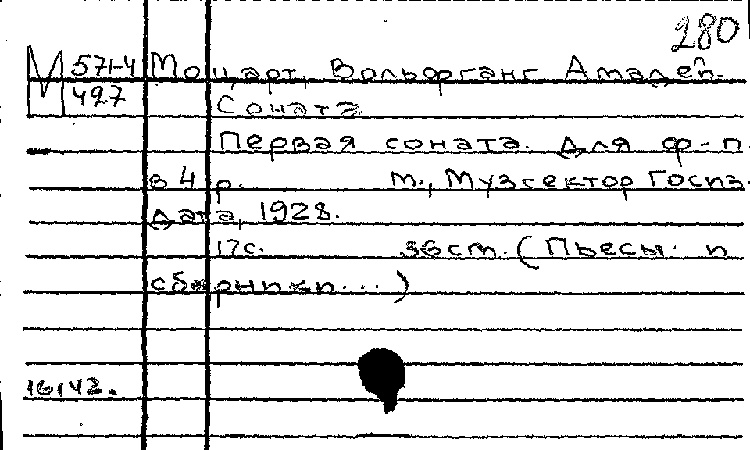 280
М 571-4 Моцарт, Вольфганг Амадей.
427 Соната
Первая соната для ф-п.
в 4 р. М., Музсектор Госиз-
дата, 1928.
17с. 36см. (Пьесы и
сборники...)
16142.